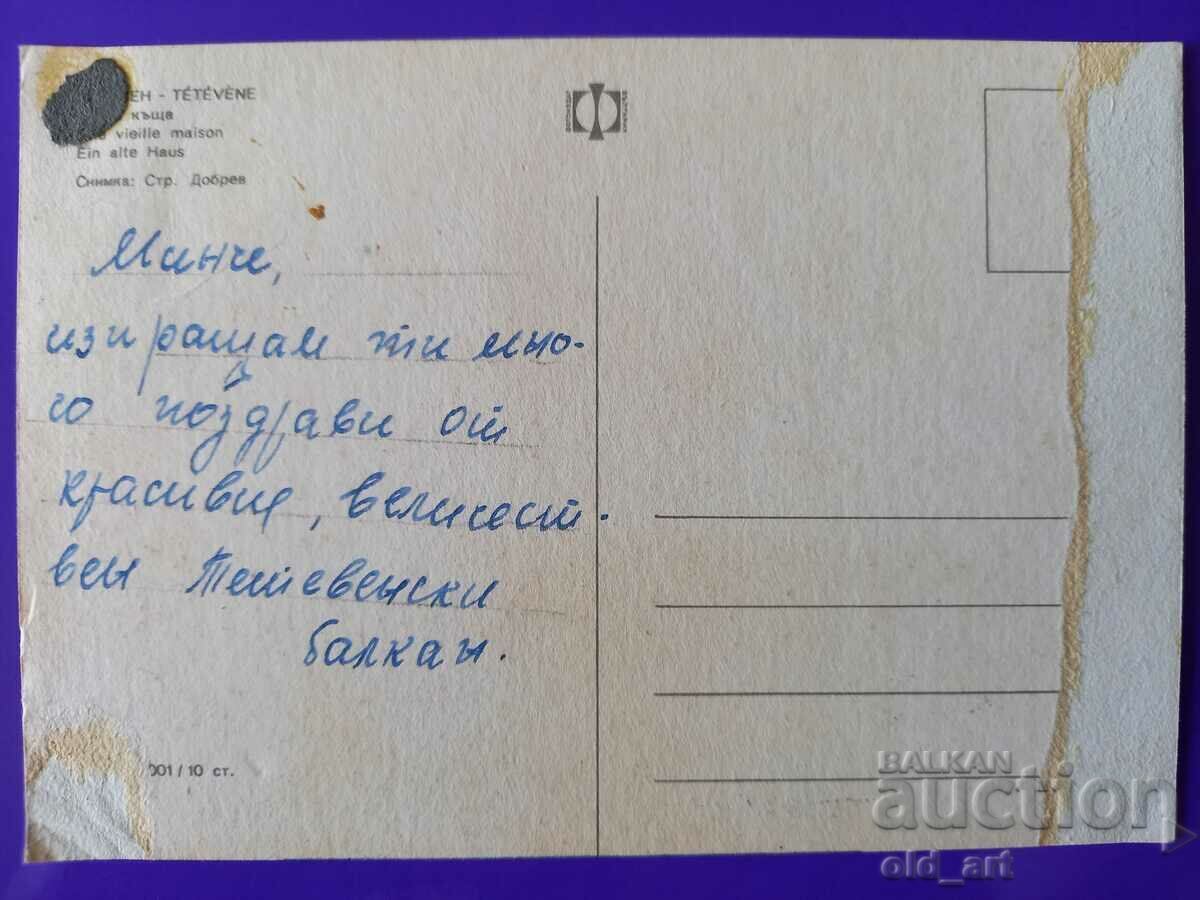 ЕН - TÉTÉVÈNE
къща
vieille maison
Ein alte Haus
Снимка: Стр. Добрев
Минче,
изпращам ти мно-
го поздрави от
красивия, величест-
вен Тетевенски
балкан.
001/10 ст.
BALKAN
auction
old_art